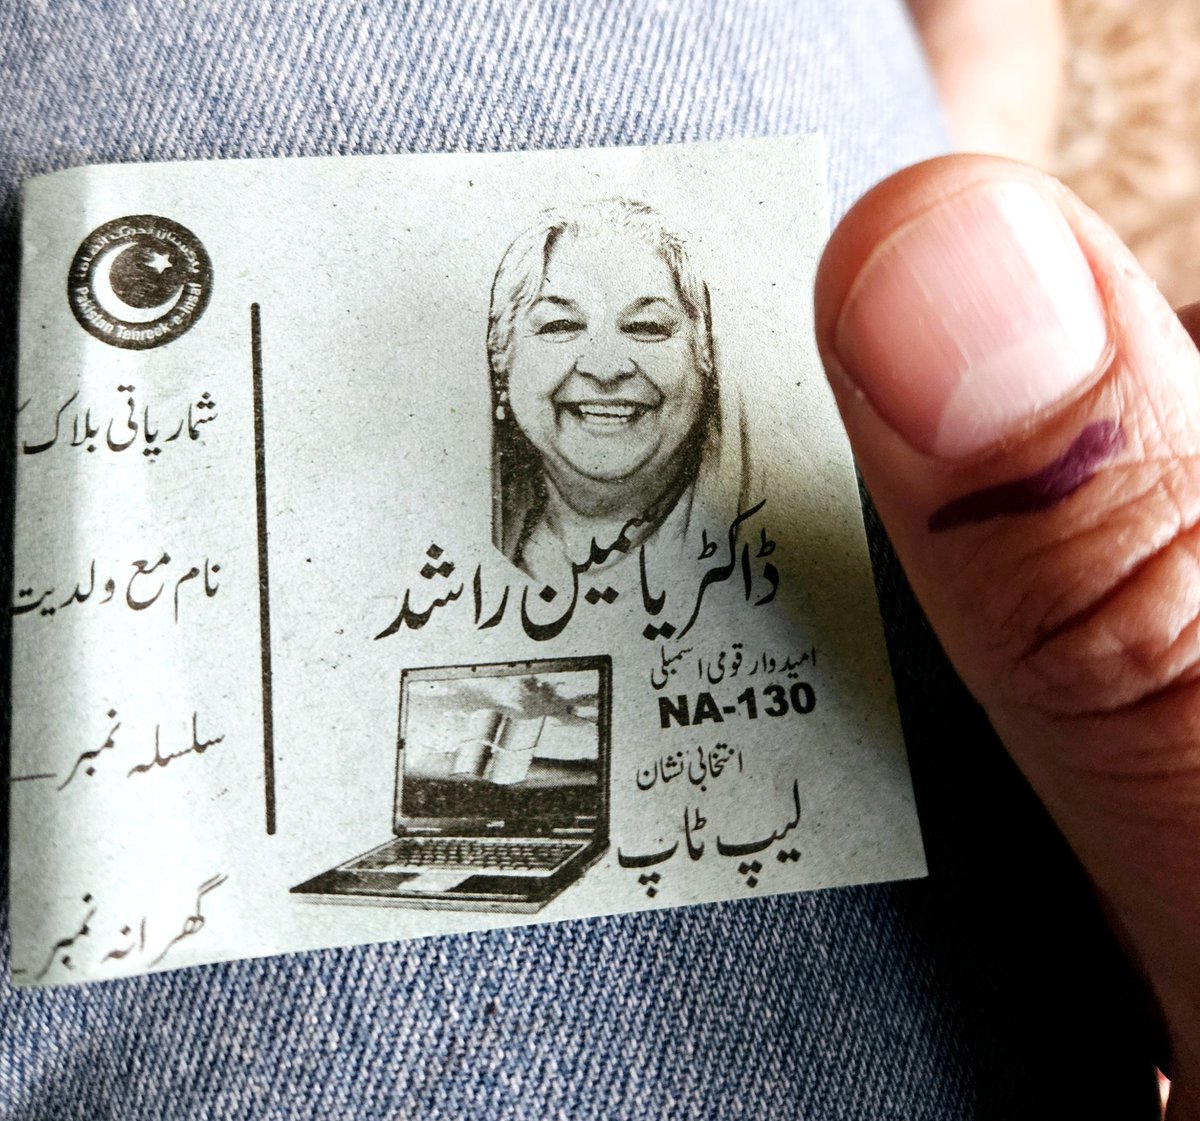 پاکستان تحریک انصاف
Pakistan Tehreek-e-Insaf
شماریاتی بلاک
نام مع ولدیت
سلسلہ نمبر
گھرانہ نمبر
ڈاکٹر یاسمین راشد
امیدوار قومی اسمبلی
NA-130
انتخابی نشان
لیپ ٹاپ